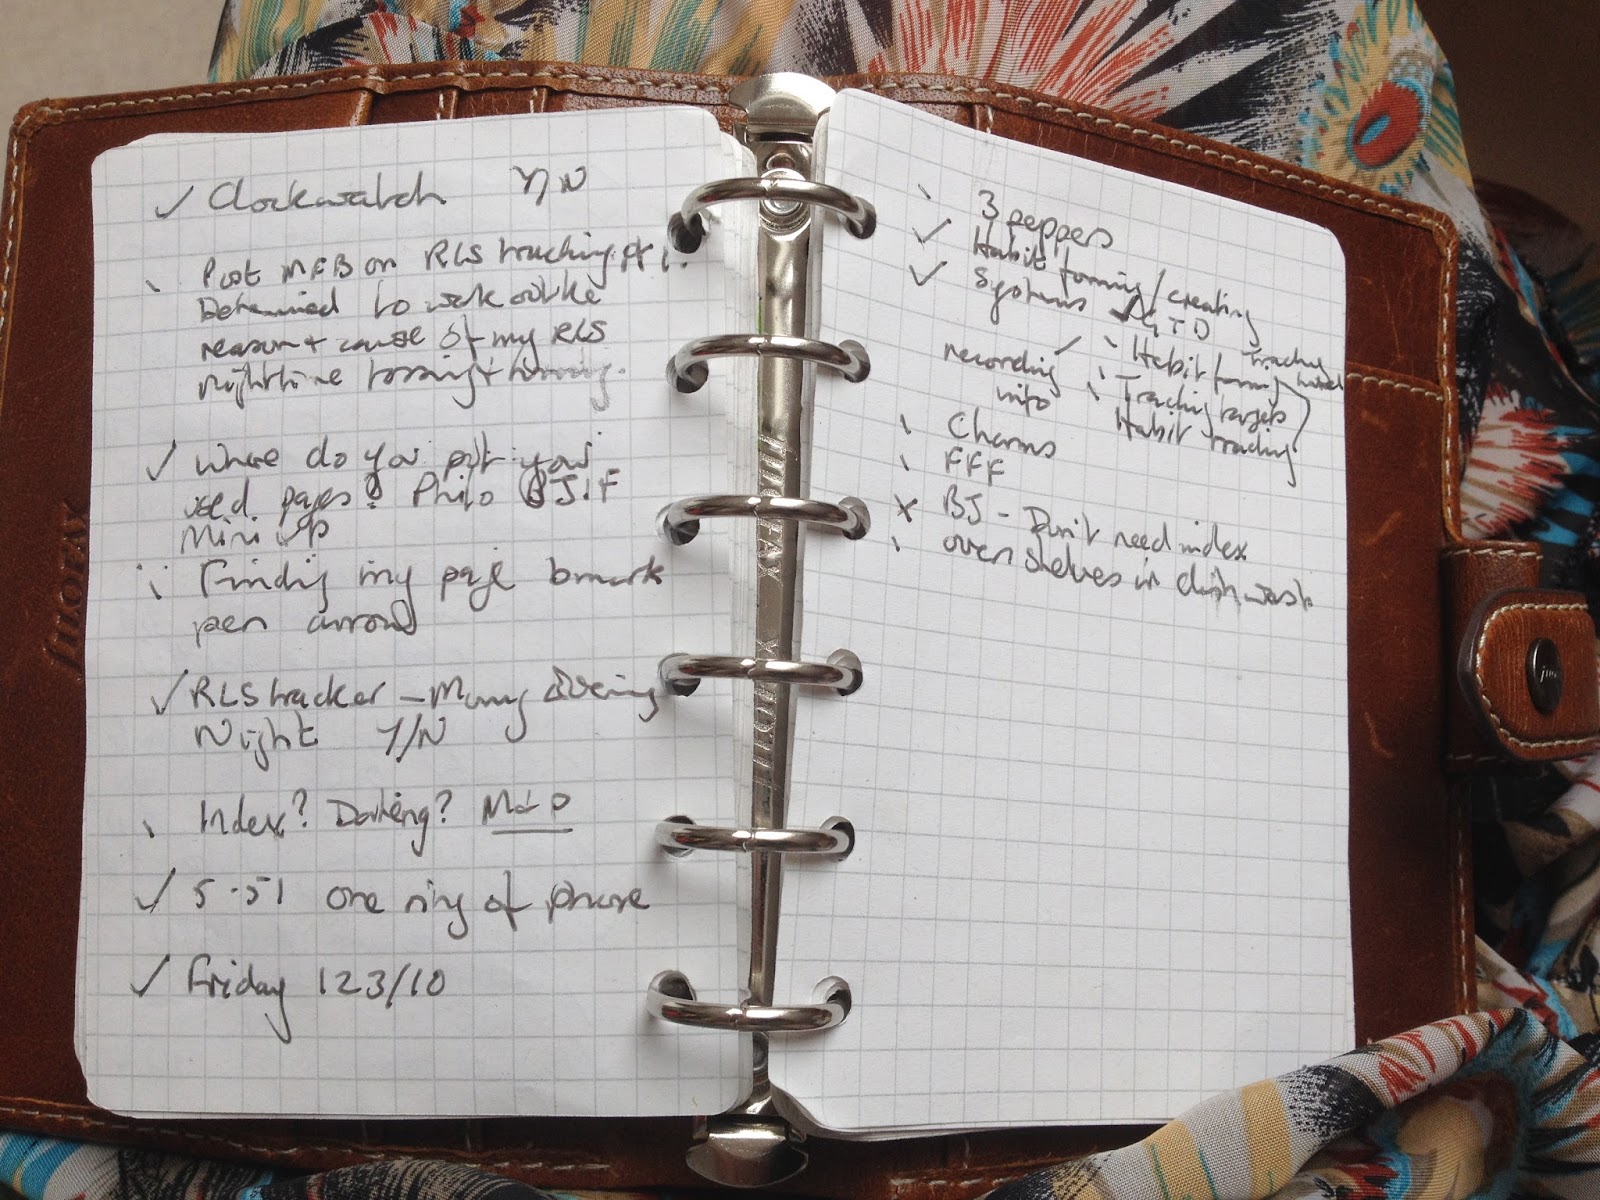 ✓ Clockwatch Y/N
Post MFB on RLS tracking pt 1.
Determined to work out the
reason + cause of my RLS
nighttime tossing + turning.
✓ Where do you put your
used pages? Philo
Mini
Finding my page bmark
pen arrow
✓ RLS tracker – Morning Evening
Night Y/N
Index? Dateing?
✓ 5.51 one ring of phone
✓ Friday 123/10
3 peppers
✓ Habit forming/creating
✓ Systems GTD
recording ✓ Habit forming Tracking
info Tracking targets
Habit tracking
Charms
FFF
x BJ – Don't need index
oven shelves in dishwash
filofax
FILOFAX